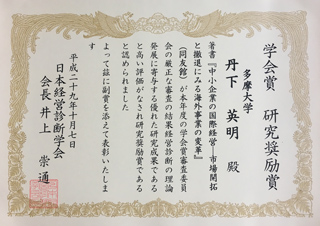 学会賞 研究奨励賞
多摩大学
丹下 英明 殿
著書『中小企業の国際経営―市場開拓
と撤退にみる海外事業の変革』
(同友館)が本年度の学会賞審査委員
会の厳正な審査の結果経営診断の理論
発展に寄与する優れた研究成果である
と高い評価がなされ研究奨励賞である
と認められました
よって茲に副賞を添えて表彰いたしま
す
平成二十九年十月七日
日本経営診断学会
会長 井上 崇通